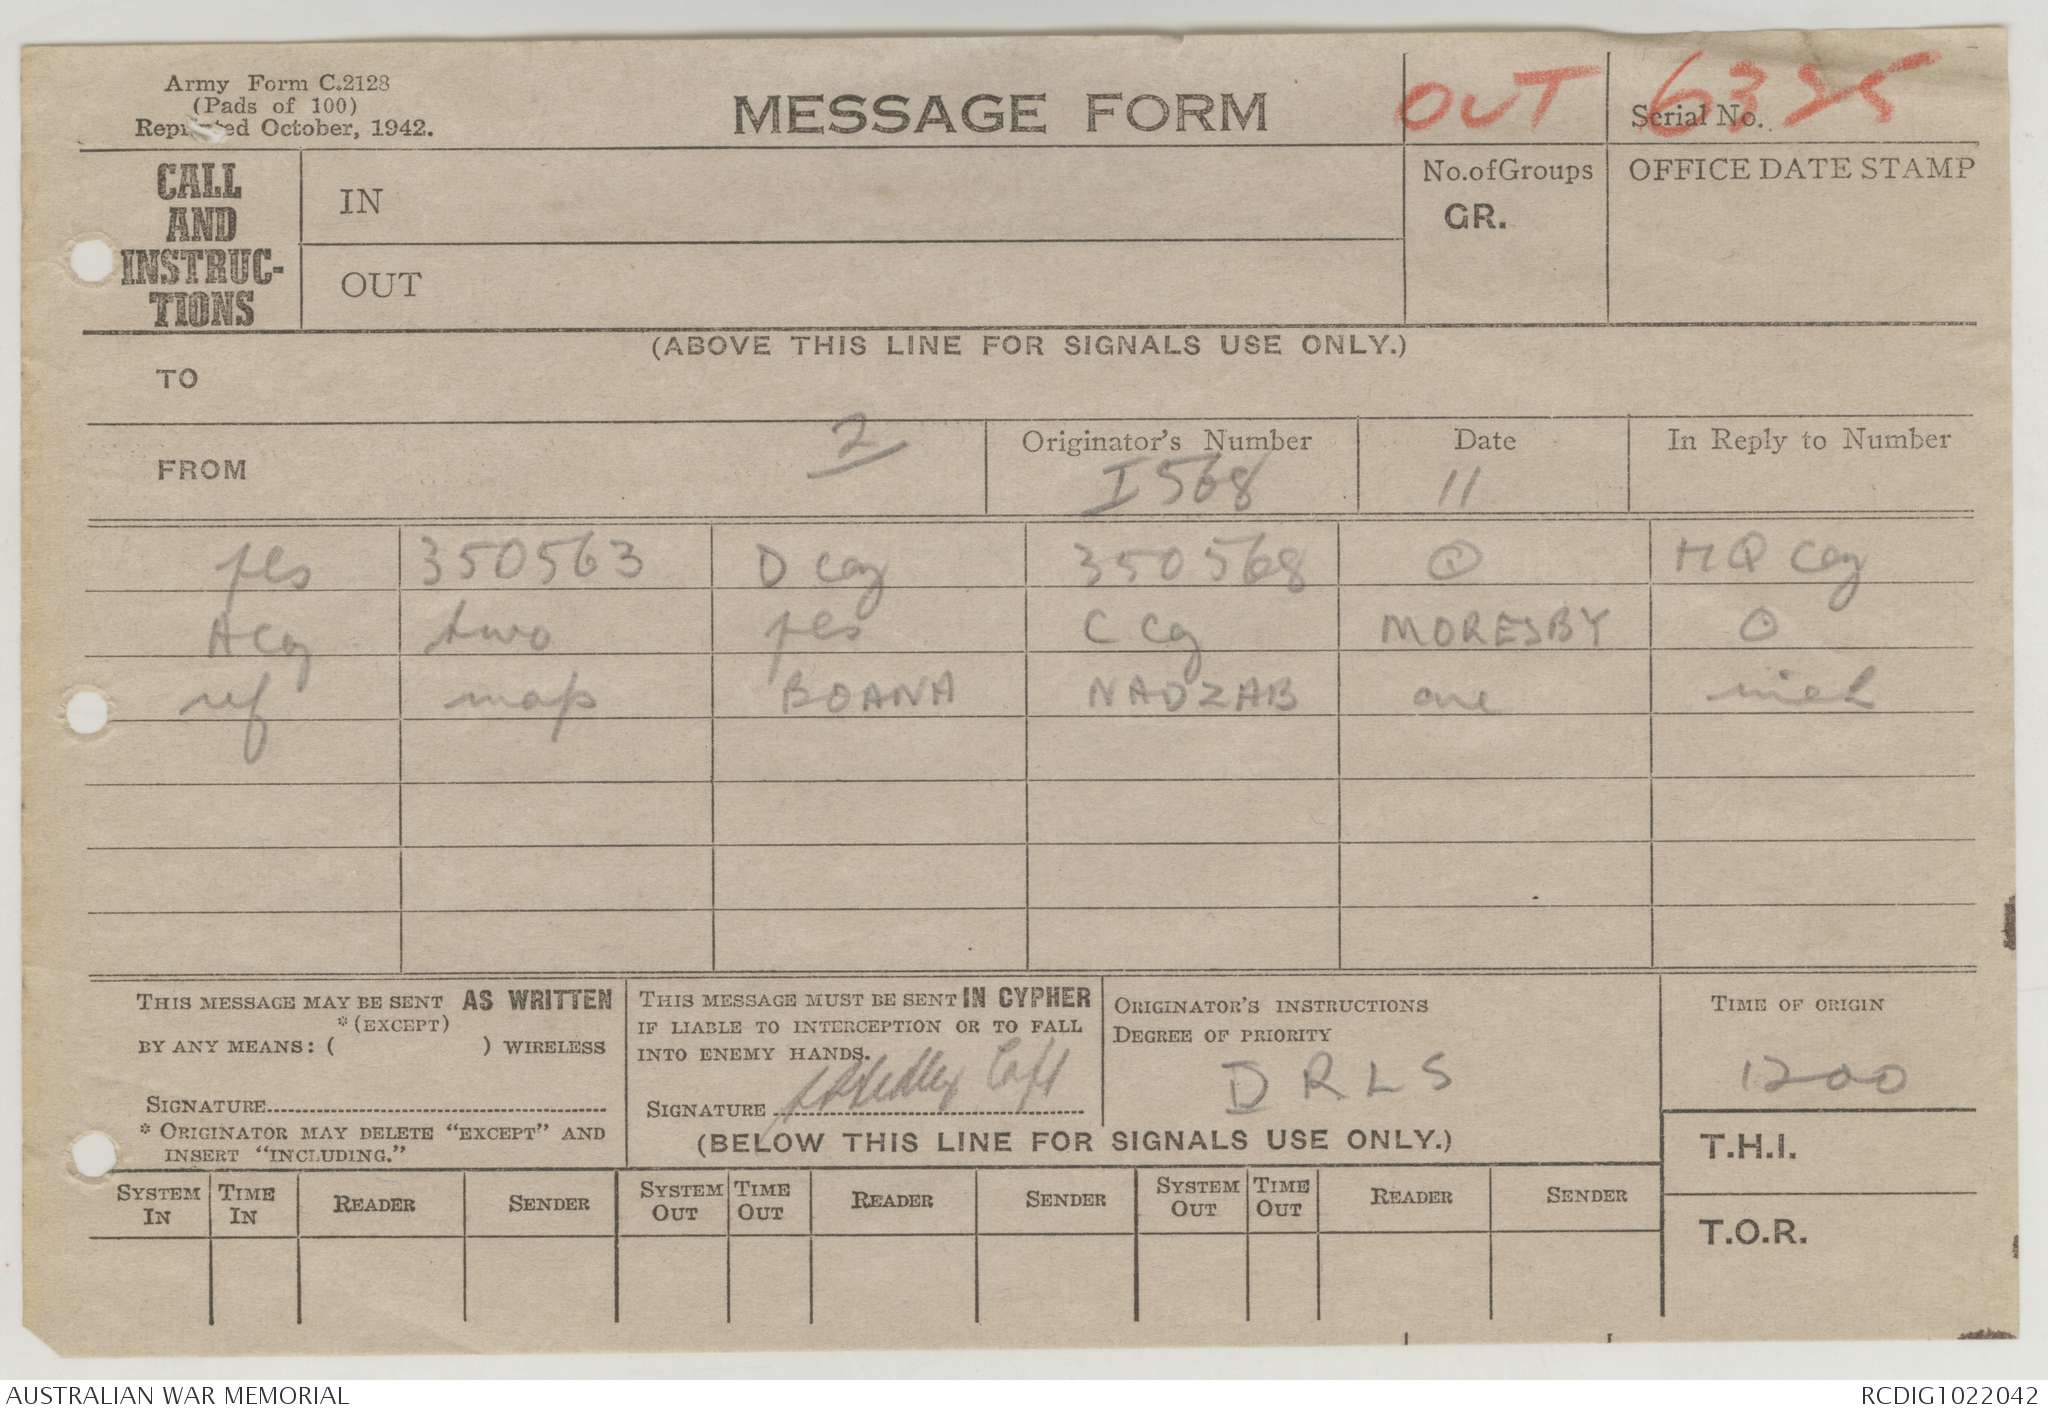 Army Form C.2128
(Pads of 100)
Reprinted October, 1942.
MESSAGE FORM
OUT
Serial No. 6325
CALL AND INSTRUC-TIONS
IN
OUT
No. of Groups
GR.
OFFICE DATE STAMP
(ABOVE THIS LINE FOR SIGNALS USE ONLY.)
TO
FROM
2
Originator's Number
I 568
Date
11
In Reply to Number
pls 350563 D Coy 350568 HQ Coy
A Coy two pls C Coy MORESBY O
ref map BOANA NADZAB one inch
THIS MESSAGE MAY BE SENT AS WRITTEN
*(EXCEPT)
BY ANY MEANS: ( ) WIRELESS
SIGNATURE
* ORIGINATOR MAY DELETE "EXCEPT" AND
INSERT "INCLUDING."
THIS MESSAGE MUST BE SENT IN CYPHER
IF LIABLE TO INTERCEPTION OR TO FALL
INTO ENEMY HANDS.
SIGNATURE Capt
ORIGINATOR'S INSTRUCTIONS
DEGREE OF PRIORITY
DRLS
TIME OF ORIGIN
1200
(BELOW THIS LINE FOR SIGNALS USE ONLY.)
T.H.I.
T.O.R.
SYSTEM IN TIME IN READER SENDER SYSTEM OUT TIME OUT READER SENDER SYSTEM OUT TIME OUT READER SENDER
AUSTRALIAN WAR MEMORIAL
RCDIG1022042